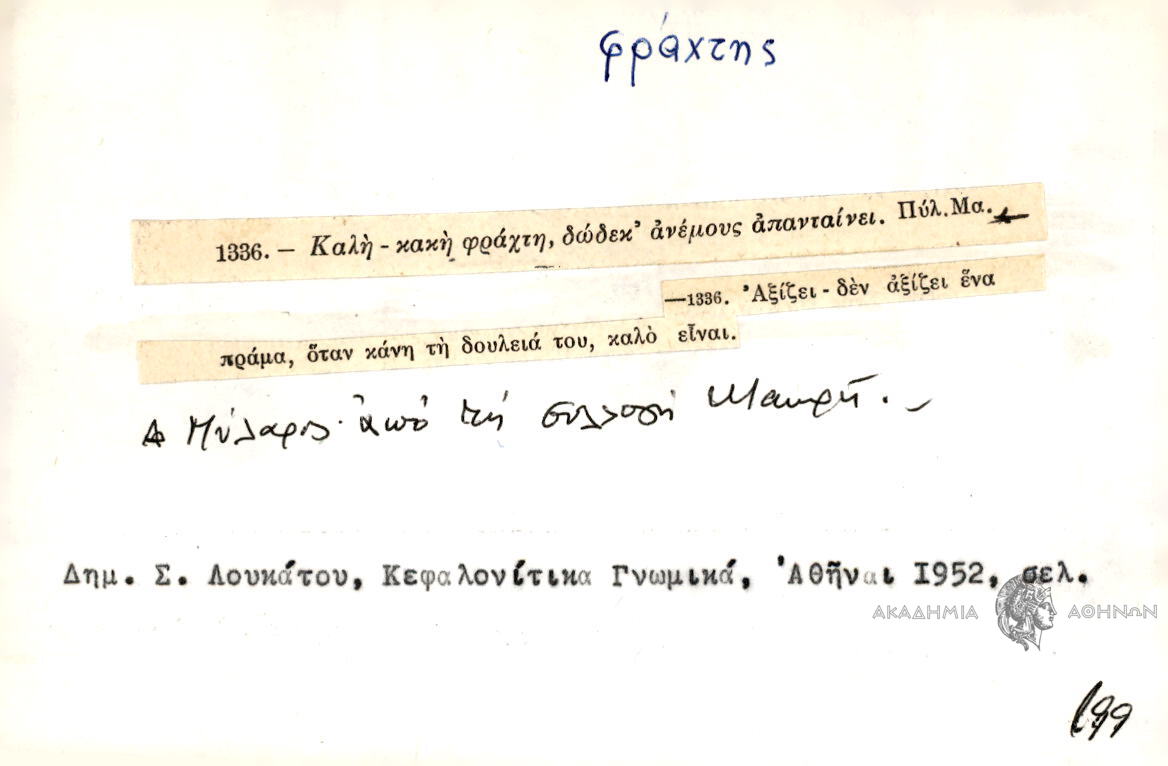 φράχτης
1336. — Καλὴ - κακὴ φράχτη, δώδεκ' ἀνέμους ἀπανταίνει. Πύλ. Μα.
—1336. Ἀξίζει - δὲν ἀξίζει ἕνα
πράμα, ὅταν κάνη τὴ δουλειά του, καλὸ εἶναι.
ἀπό τή συλλογή Μακρῆ.
Δημ. Σ. Λουκάτου, Κεφαλονίτικα Γνωμικά, Ἀθῆναι 1952, σελ.
ΑΚΑΔΗΜΙΑ ΑΘΗΝΩΝ